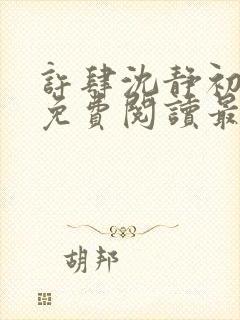 許肆沈靜初
免費閱讀最
胡邦